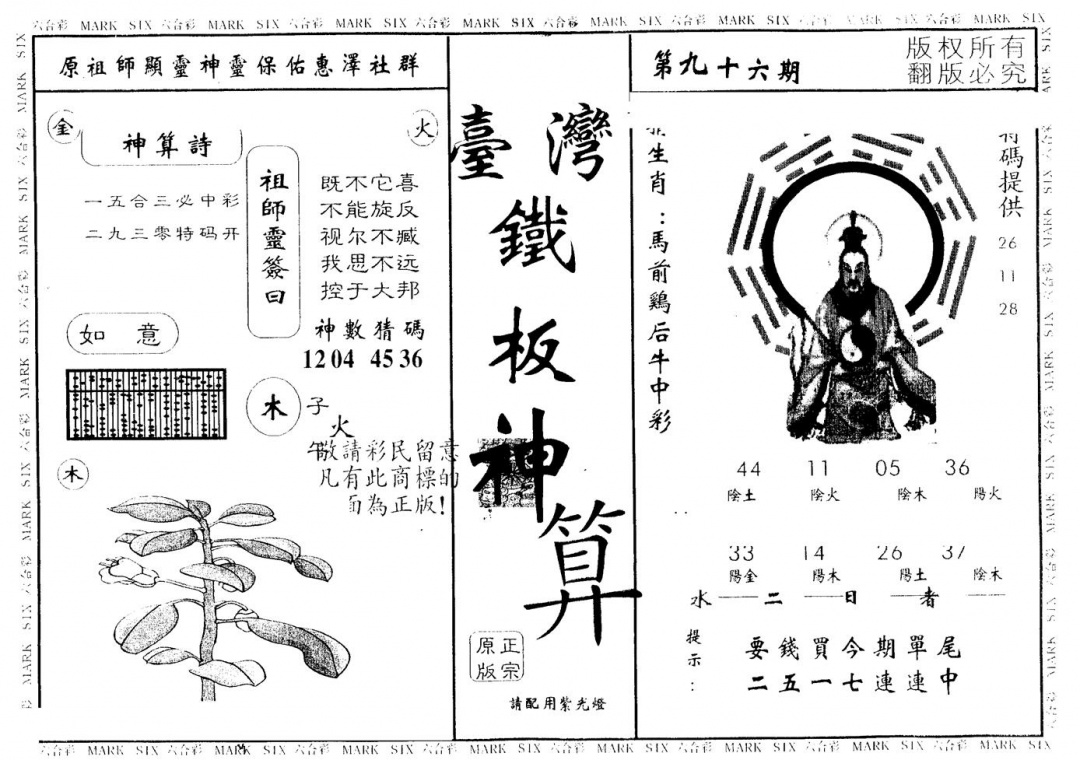 六合彩 MARK SIX 六合彩 MARK SIX 六合彩 MARK SIX 六合彩 MARK SIX 六合彩 MARK SIX 六合彩 MARK SIX 六合彩 MARK SIX 六合彩 MARK SIX
原祖師顯靈神靈保佑惠澤社群
金
神算詩
火
一五合三必中彩
二九三零特码开
祖師靈簽曰
既不它喜
不能旋反
视尔不臧
我思不远
控于大邦
神數猜碼
12 04 45 36
如意
木
子
火
午
敬請彩民留意
凡有此商標的
為正版!
木
臺灣
鐵
板
神
算
正宗
原版
請配用紫光燈
第九十六期
版权所有
翻版必究
生肖:馬前鷄后牛中彩
碼提供
26
11
28
44 11 05 36
陰土 陰火 陰木 陽火
33 14 26 37
陽金 陽木 陽土 陰木
水 二 日 者
提示:
要錢買今期單尾
二五一七連連中
六合彩 MARK SIX 六合彩 MARK SIX 六合彩 MARK SIX 六合彩 MARK SIX 六合彩 MARK SIX 六合彩 MARK SIX 六合彩 MARK SIX 六合彩 MARK SIX